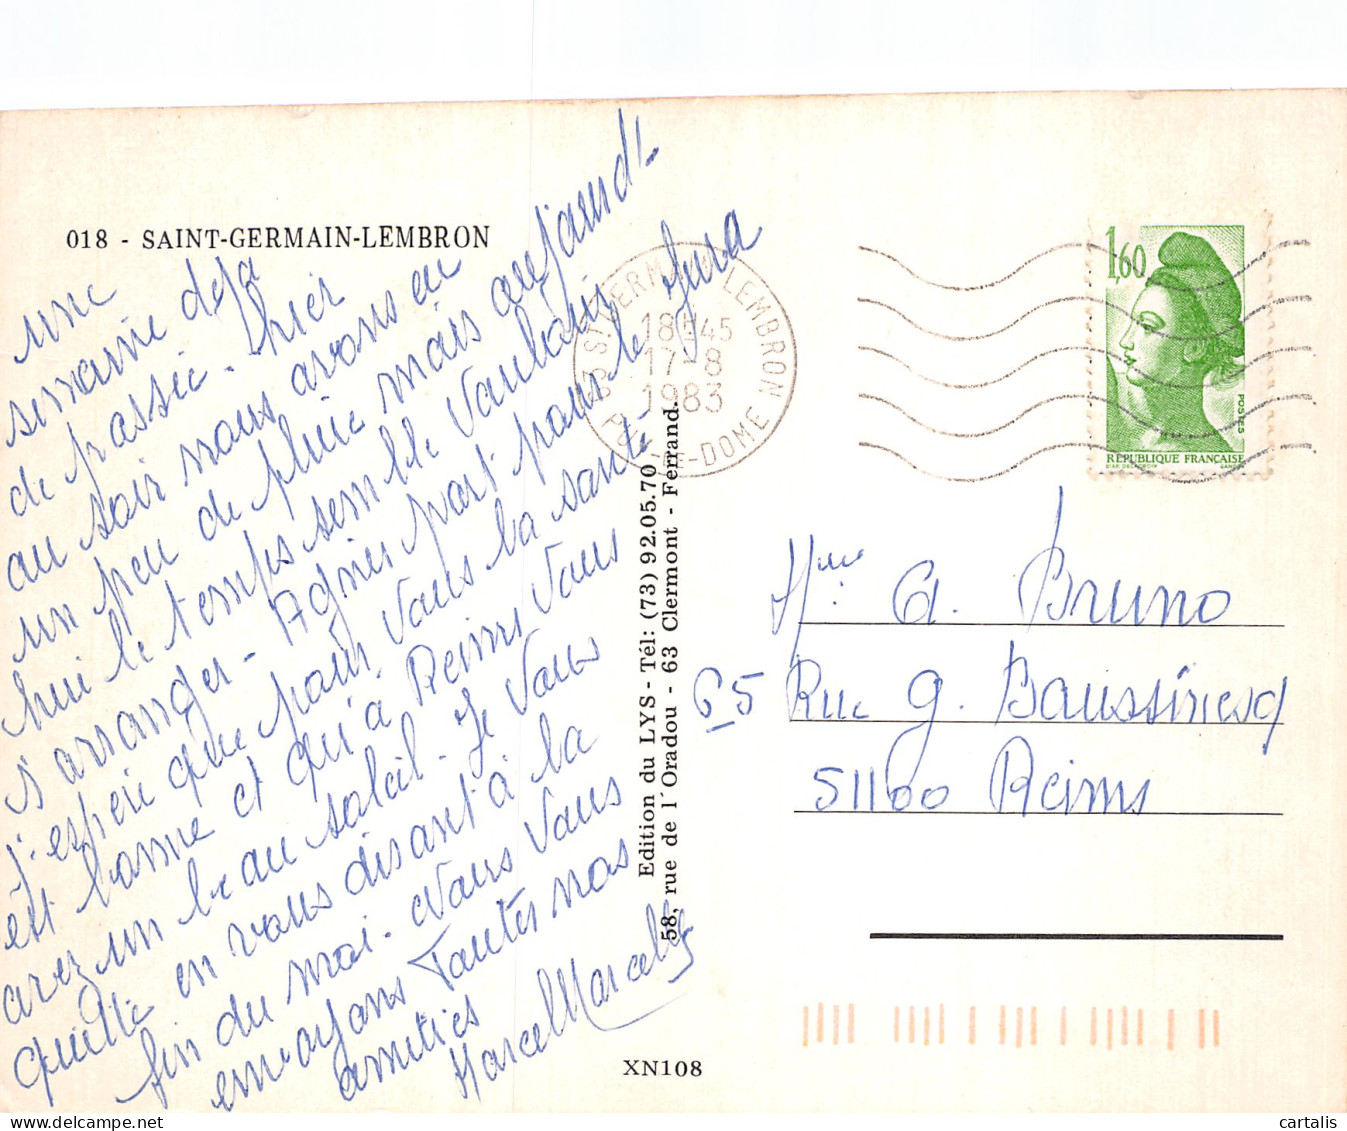 018 - SAINT-GERMAIN-LEMBRON
une
semaine déjà
de passée. hier
au soir nous avons eu
un peu de pluie mais aujourd'-
hui le temps semble vouloir
s'arranger - Agnès part pour le Jura
j'espère que pour vous la santé
est bonne et qu'à Reims vous
avez un beau soleil. Je vous
quitte en vous disant à la
fin du moi. Nous vous
envoyons toutes nos
amitiés
Marcel Marcelle
Edition du LYS - Tél: (73) 92.05.70
58, rue de l'Oradou - 63 Clermont - Ferrand.
XN108
63 ST GERMAIN LEMBRON
18H45
17-8
1983
PUY-DE-DOME
1,60
POSTES
RÉPUBLIQUE FRANÇAISE
D'AP. DELACROIX GANDON
Mme A. Bruno
65 Rue G. Boussinesq
51100 Reims
cartalis